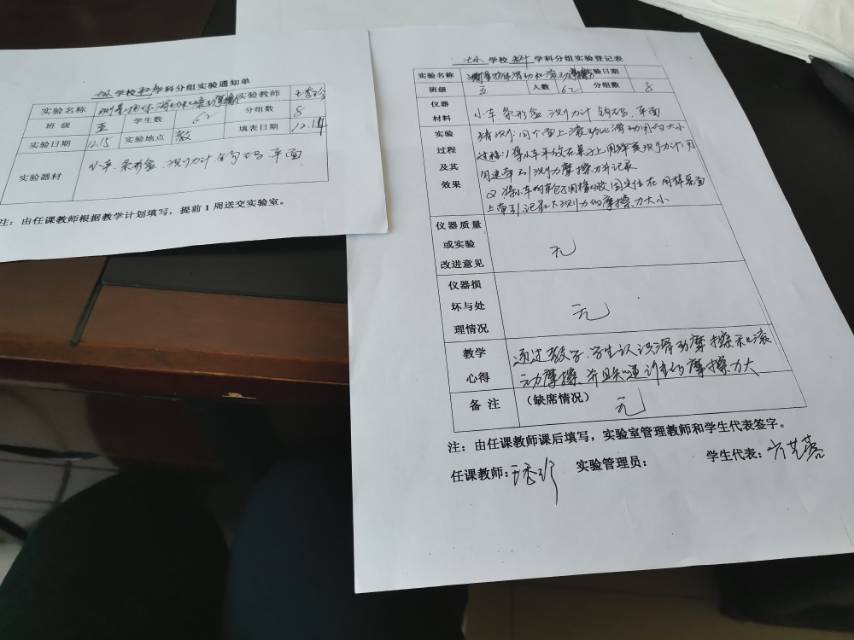 学校 科学科分组实验通知单
实验名称 测量物体滑动和滚动摩擦 实验教师
班 级 五 学生数 62 分组数 8
实验日期 12.15 实验地点 教 填表日期 12.14
实验器材 小车 条形盒 测力计 钩码 平面
注：由任课教师根据教学计划填写，提前1周送交实验室。
学校 科学 学科分组实验登记表
实验名称 测量物体滑动和滚动摩擦 实验日期
班级 五 人数 62 分组数 8
仪器材料 小车 条形盒 测力计 钩码 平面
实验过程及其效果
猜测小 同个面上滚动比滑动用力大小
过程:1 将小车平放在桌子上用弹簧测力计
匀速牵引 测力摩擦力并记录
固定住在同样桌面
上牵引记录大 测力的摩擦力大小
仪器质量或实验改进意见 无
仪器损坏与处理情况 无
教学心得 通过教学.学生认识滑动摩擦和滚
动摩擦 并且知道 摩擦力大
备 注 （缺席情况） 无
注：由任课教师课后填写，实验室管理教师和学生代表签字。
任课教师: 实验管理员: 学生代表: